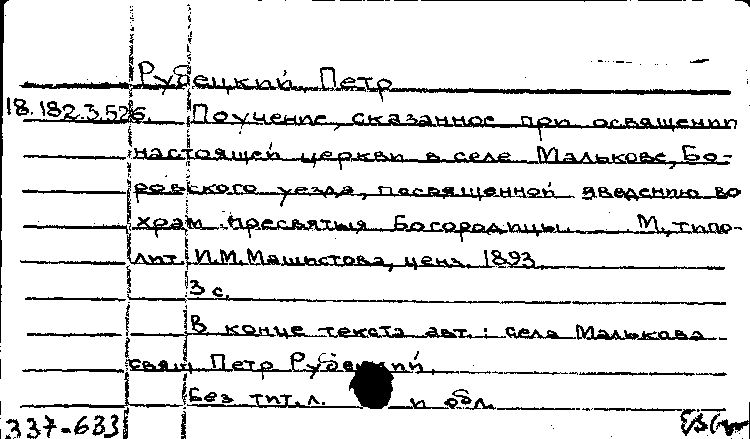 Рудецкий, Петр
18.182.3.526. Поучение, сказанное при освящении
настоящей церкви в селе Малькове, Бо-
ровского уезда, посвященной введению во
храм пресвятыя Богородицы. М., типо-
лит. И.М. Машистова, ценз. 1893.
3 с.
В конце текста авт.: села Малькова
свящ. Петр Рудецкий.
Без тит. л. и обл.
337-633